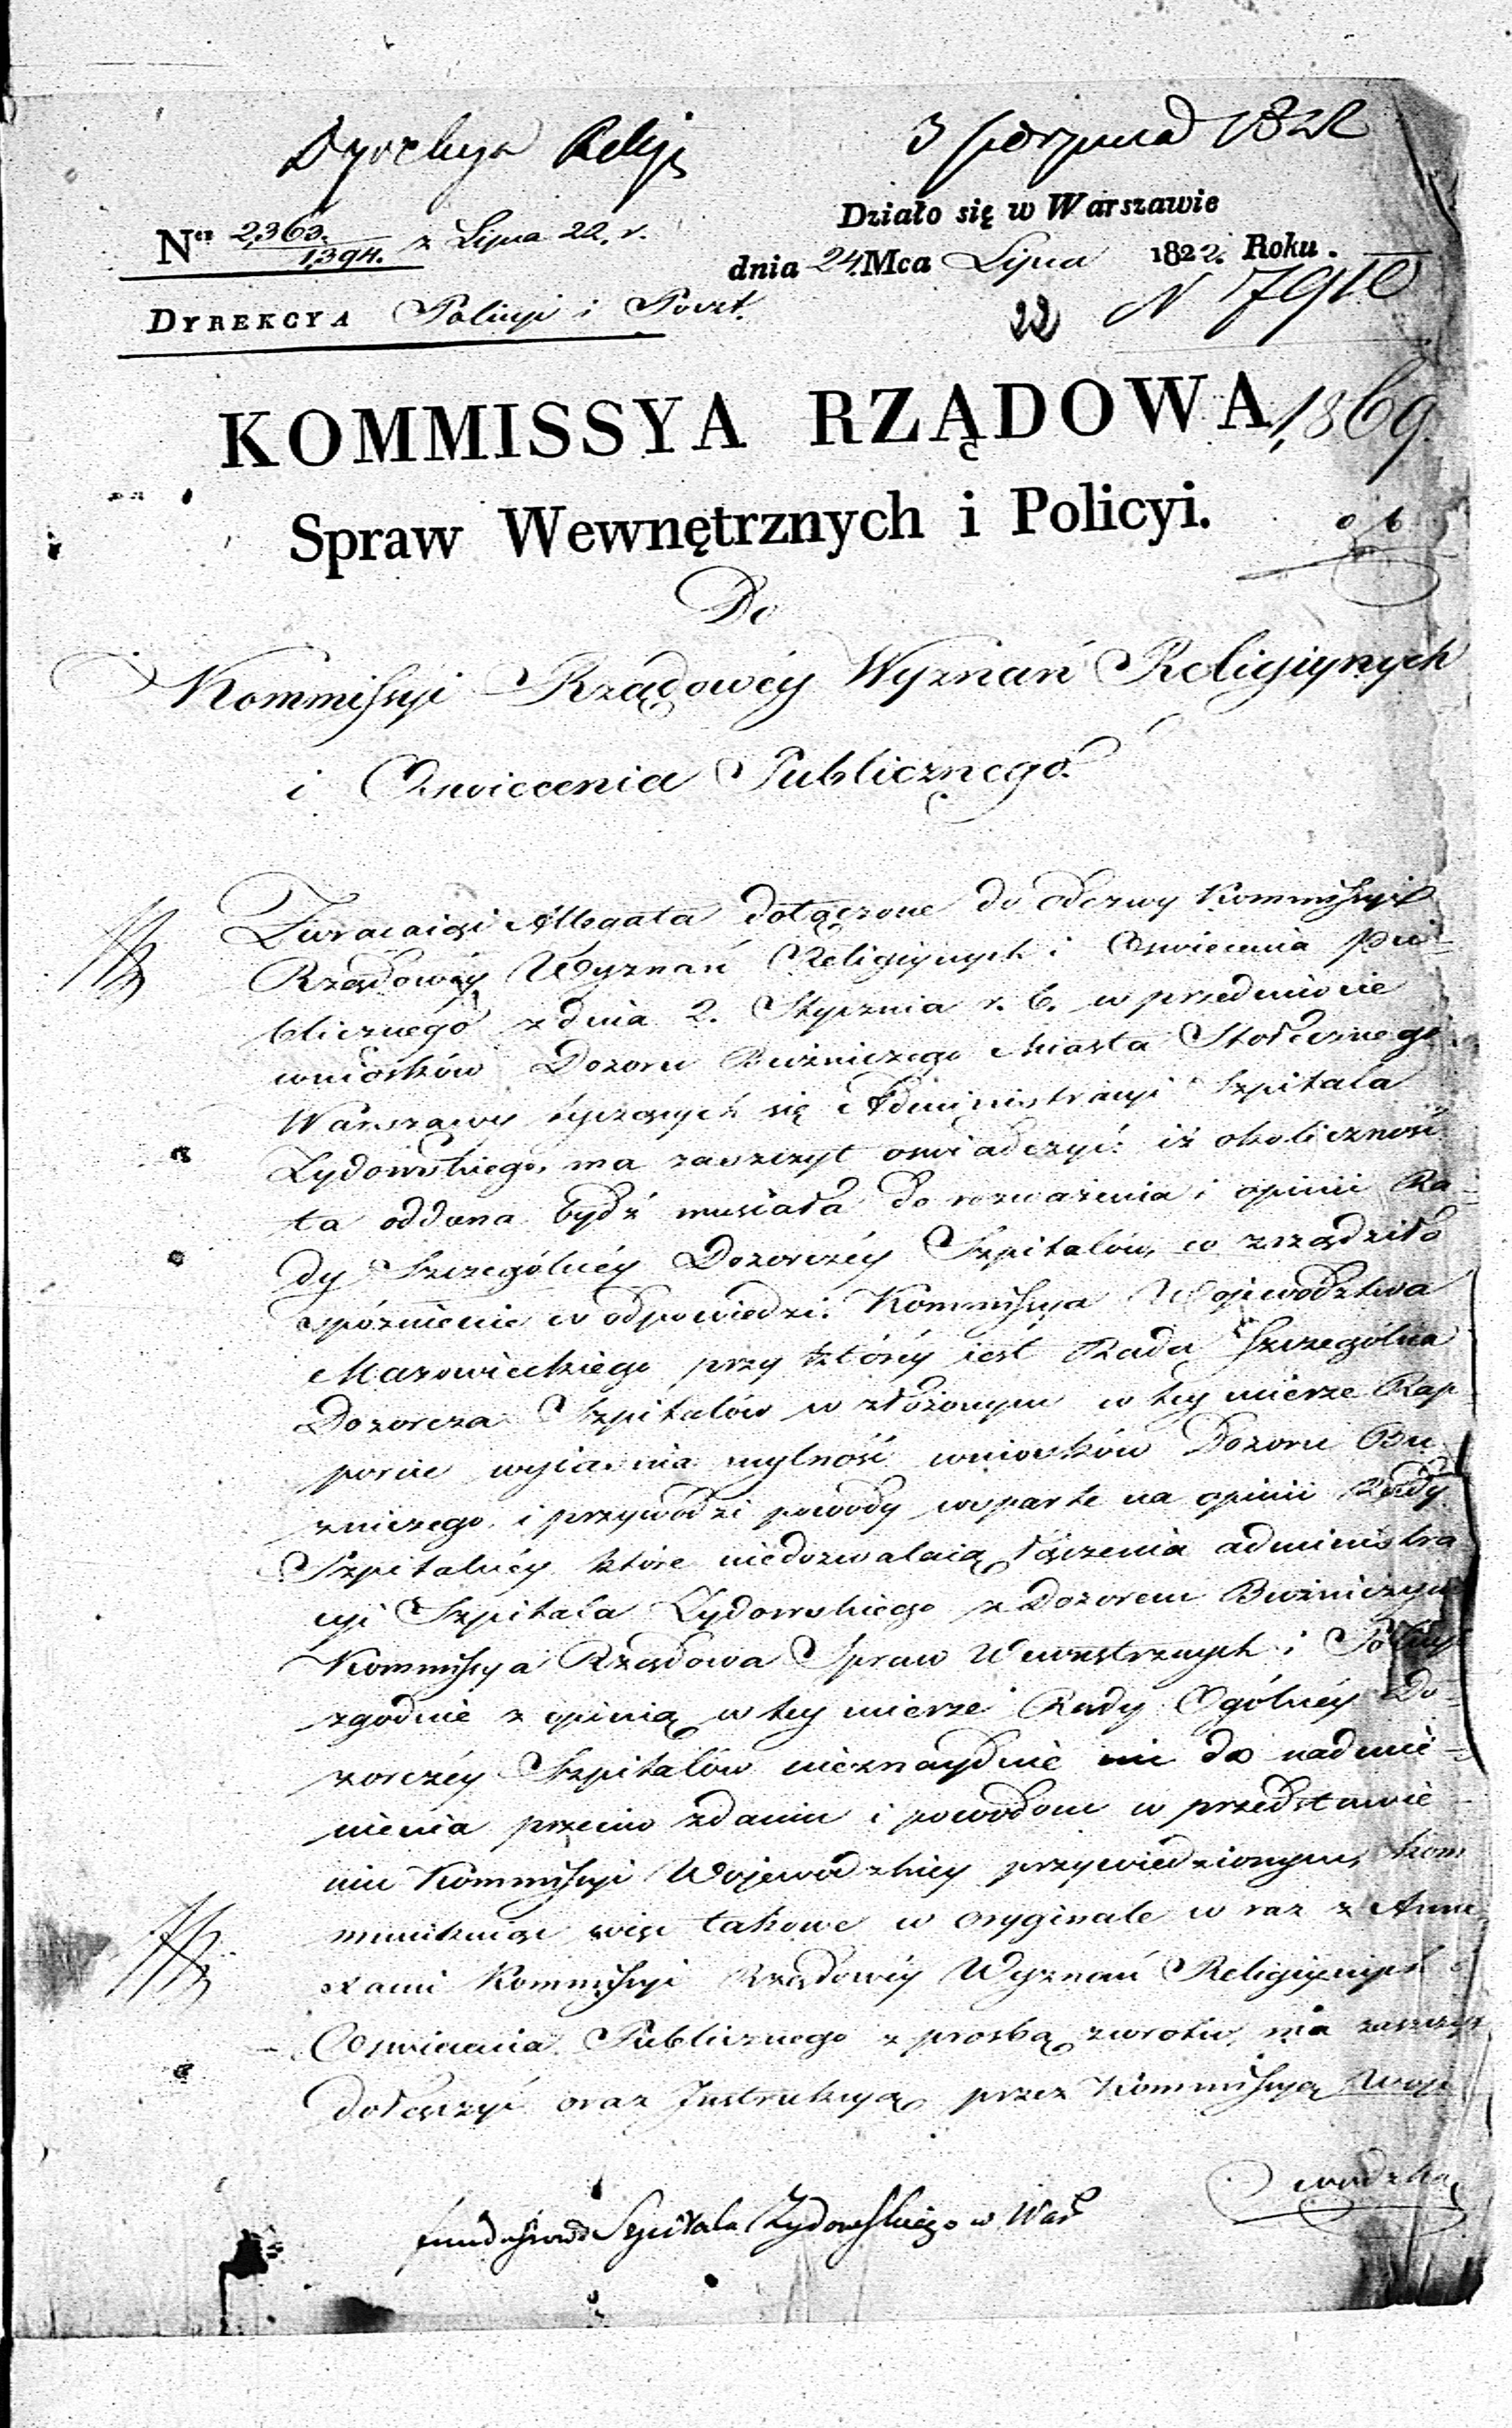 Dyrekcya Religii
3 sierpnia 1822
Działo się w Warszawie
Nro 2,363./1,394. z Lipca 22. r.
dnia 24. Mca Lipca 1822. Roku.
DYREKCYA Policyi i Poczt.
22
N 7910
KOMMISSYA RZĄDOWA
1,869.
Spraw Wewnętrznych i Policyi.
Do
Kommissyi Rządowéy Wyznań Religiynych
i Oswiecenia Publicznego.
Zwracaiąc Allegata dołączone do odezwy Kommissyi
Rządowéy Wyznań Religiynych i Oswiecenia Pu-
blicznego z dnia 2. Stycznia r. b. w przedmiocie
wniosków Dozoru Bużniczego Miasta Stołecznego
Warszawy tyczących się Administracyi Szpitala
Żydowskiego, ma zaszczyt oswiadczyć: iż okoliczność
ta oddana bydź musiała do rozważenia i opinii Ra-
dy Szczególnéy Dozorczéy Szpitalów, co zrządziło
spóznienie w odpowiedzi. Kommissya Województwa
Mazowieckiego przy którey iest Rada Szczególna
Dozorcza Szpitalów w złożonym w tey mierze Rap-
porcie wyiasnia mylność wniosków Dozoru Bu-
żniczego, i przywodzi powody wsparte na opinii Rady
Szpitalnéy które niedozwalaią łączenia administra-
cyi Szpitala Żydowskiego z Dozorem Bużniczym
Kommissya Rządowa Spraw Wewnętrznych i Policyi
zgodnie z opinią w tey mierze Rady Ogólnéy Do-
zorczéy Szpitalów nieznayduie nic do nadmie-
nienia przeciw zdaniu i powodom w przedstawie-
niu Kommissyi Wojewódzkiey przywiedzionym, kom
munikuiąc więc takowe w oryginale wraz z Anne
xami Kommissyi Rządowéy Wyznań Religiynych i
Oswiecenia Publicznego z prosbą zwrotu, ma zaszczyt
dołączyć oraz Instrukcyą, przez Kommissyą Woje
wodzką
funduszowa Szpitala Żydowskiego w War